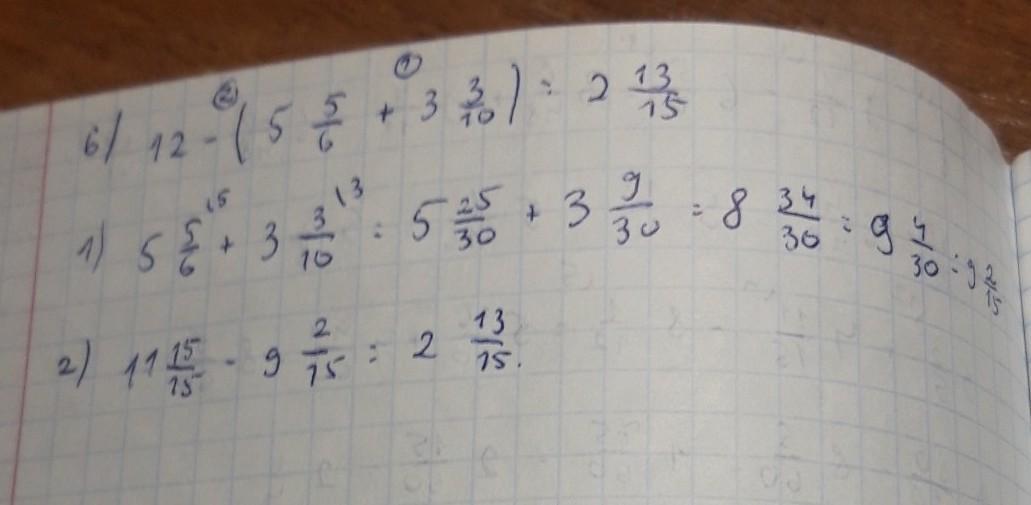 б) 12 - (5 5/6 + 3 3/10) = 2 13/15
1) 5 5/6 \5 + 3 3/10 \3 = 5 25/30 + 3 9/30 = 8 34/30 = 9 4/30 = 9 2/15
2) 11 15/15 - 9 2/15 = 2 13/15.